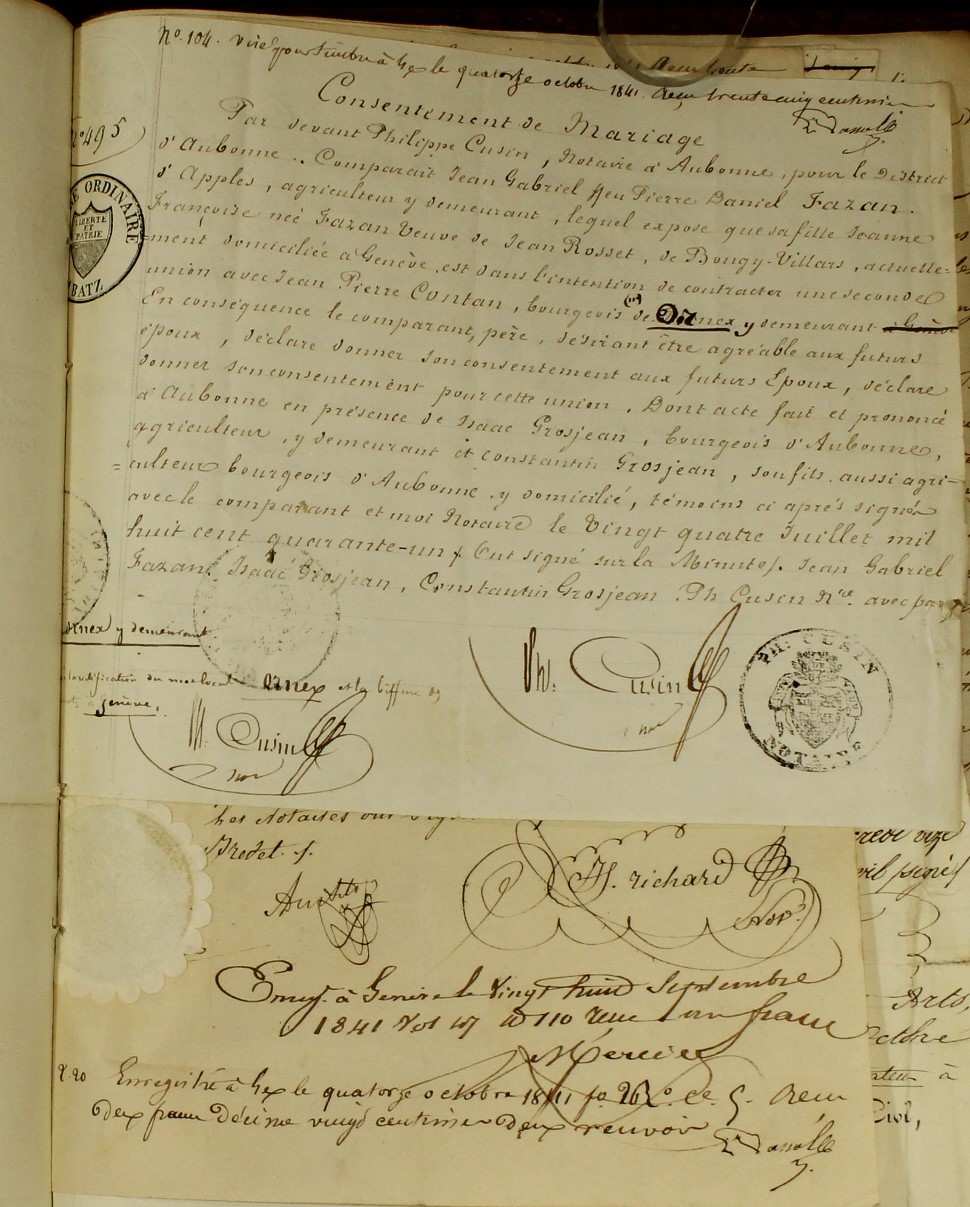 No. 104. Visé pour timbre à Gex le quatorze octobre 1841. Reçu trente cinq centimes
Consentement de Mariage
No 495
Par devant Philippe Cusin, Notaire à Aubonne, pour le District
d'Aubonne.. Comparait Jean Gabriel ffeu Pierre Daniel Fazan.
d'Apples, agriculteur y demeurant, lequel expose que sa fille Jeanne
Françoise née Fazan Veuve de Jean Rosset, de Bougy-Villars, actuelle-
=ment domiciliée à Genève, est dans l'intention de contracter une seconde
union avec Jean Pierre Contan, bourgeois de Ornex y demeurant à Genève
En conséquence le comparant, père, désirant être agréable aux futurs
époux, déclare donner son consentement aux futurs Epoux, déclare
donner son consentement pour cette union, Dont acte fait et prononcé
à Aubonne en présence de Isaac Grosjean, bourgeois d'Aubonne,
agriculteur, y demeurant et Constantin Grosjean, son fils, aussi agri-
=culteur bourgeois d'Aubonne y domicilié, témoins ci après signés
avec le comparant et moi Notaire le Vingt quatre Juillet mil
huit cent quarante-un. Ont signé sur la Minute. Jean Gabriel
Fazan, Isaac Grosjean, Constantin Grosjean. Ph Cusin Nre. avec par
ORDINAIRE
LIBERTE
ET
PATRIE
BATZ
Ornex y demeurant
du mot Ornex et la biffure
Genève.
Ph. Cusin
not
Ph. Cusin
not
PH: CUSIN
NOTAIRE
Les Notaires ont
Bredet.
richard
Not.
Enreg. à Genève le Vingt huit Septembre
1841 Vol 47 110 reçu un franc
Mercier
2 20 Enregistré à Gex le quatorze octobre 1841 fo 26 Vo. Ce. 5. Reçu
deux francs Décime vingt centimes Deux renvois
Arts,
Octobre
à